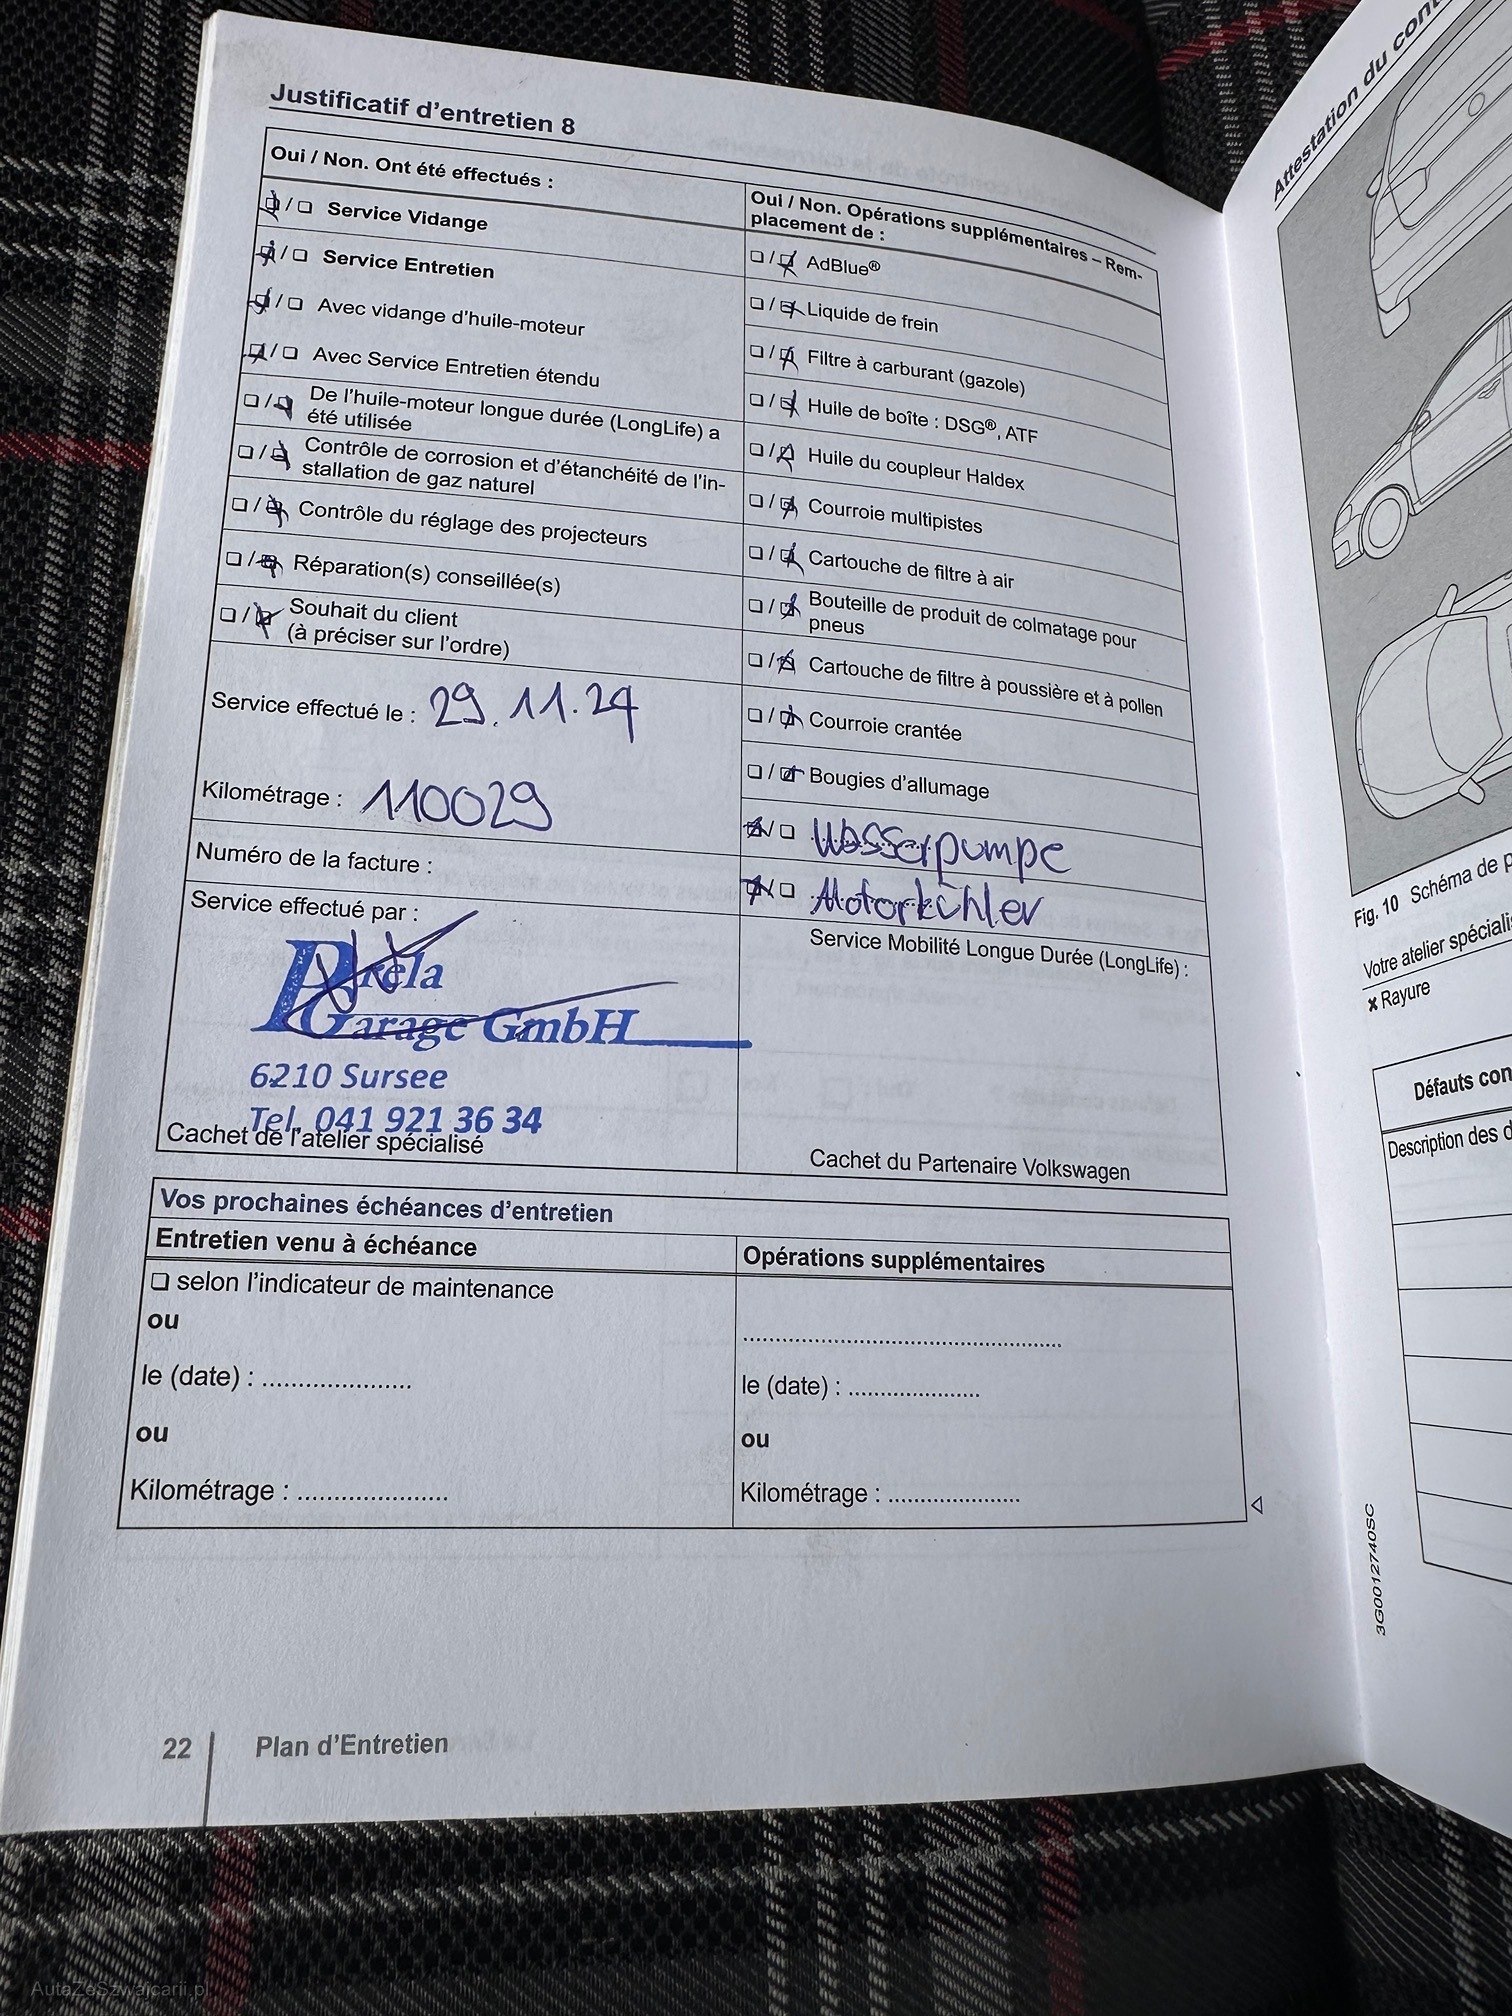 Justificatif d'entretien 8
Oui / Non. Ont été effectués :
❏ / ❏ Service Vidange
❏ / ❏ Service Entretien
❏ / ❏ Avec vidange d'huile-moteur
❏ / ❏ Avec Service Entretien étendu
❏ / ❏ De l'huile-moteur longue durée (LongLife) a
été utilisée
❏ / ❏ Contrôle de corrosion et d'étanchéité de l'in-
stallation de gaz naturel
❏ / ❏ Contrôle du réglage des projecteurs
❏ / ❏ Réparation(s) conseillée(s)
❏ / ❏ Souhait du client
(à préciser sur l'ordre)
Service effectué le : 29.11.24
Kilométrage : 110029
Numéro de la facture :
Service effectué par :
Garage GmbH
6210 Sursee
Tel. 041 921 36 34
Cachet de l'atelier spécialisé
Oui / Non. Opérations supplémentaires – Rem-
placement de :
❏ / ❏ AdBlue®
❏ / ❏ Liquide de frein
❏ / ❏ Filtre à carburant (gazole)
❏ / ❏ Huile de boîte : DSG®, ATF
❏ / ❏ Huile du coupleur Haldex
❏ / ❏ Courroie multipistes
❏ / ❏ Cartouche de filtre à air
❏ / ❏ Bouteille de produit de colmatage pour
pneus
❏ / ❏ Cartouche de filtre à poussière et à pollen
❏ / ❏ Courroie crantée
❏ / ❏ Bougies d'allumage
❏ / ❏ Wasserpumpe
❏ / ❏ Motorkühler
Service Mobilité Longue Durée (LongLife) :
Cachet du Partenaire Volkswagen
Vos prochaines échéances d'entretien
Entretien venu à échéance
❏ selon l'indicateur de maintenance
ou
le (date) : .....................
ou
Kilométrage : .....................
Opérations supplémentaires
..................................................
le (date) : .....................
ou
Kilométrage : .....................
22 Plan d'Entretien
Attestation du
Fig. 10 Schéma de
Votre atelier
✖ Rayure
Défauts
Description des
3G0012740SC
AutaZeSzwajcarii.pl